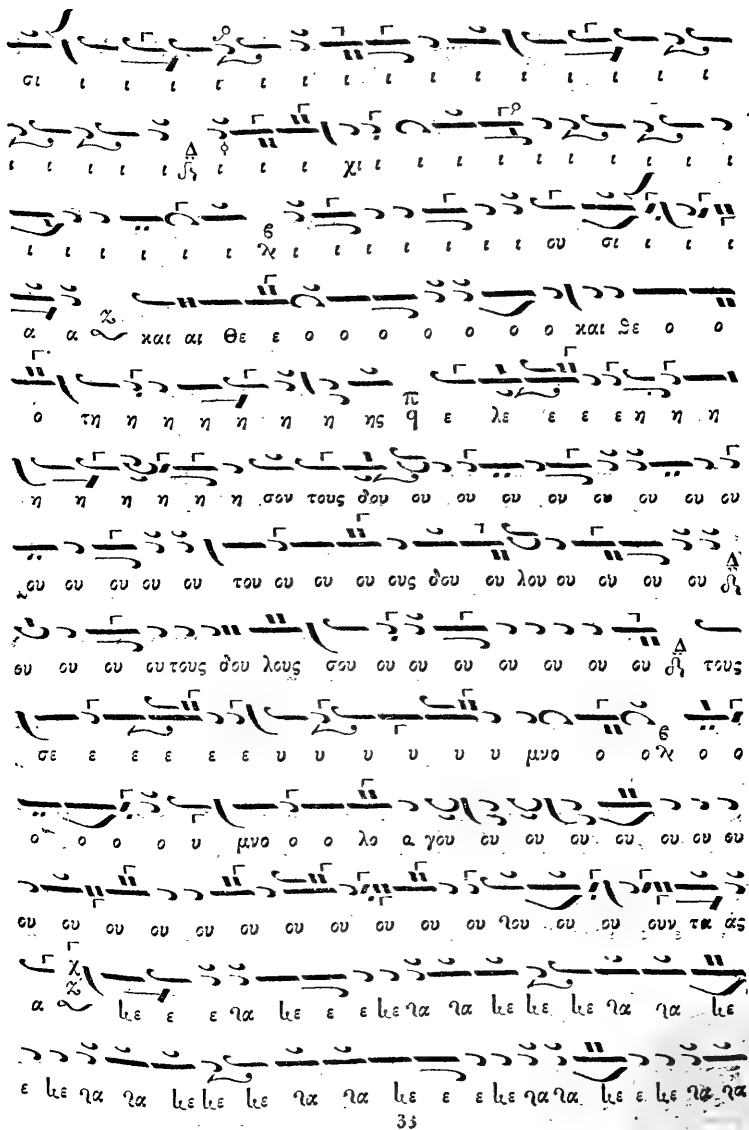 σι ι ι ι ι ι ι ι ι ι ι ι ι ι ι ι
ι ι ι ι ι Δ ι ι ι ι χι ι ι ι ι ι ι ι ι ι
ι ι ι ι ι ι ϐ ι ι ι ι ι ι ι ου σι ι ι ι
α α Ζ και αι Θε ε ο ο ο ο ο ο ο και Θε ο ο
ο τη η η η η η η ης π ε λε ε ε ε η η η
η η η η η η σου τους δου ου ου ου ου ου ου ου ου
ου ου ου ου ου του ου ου ου ους δου ου λου ου ου ου ου Δ
ου ου ου ου τους δου λους σου ου ου ου ου ου ου ου Δ τους
σε ε ε ε ε ε υ υ υ υ υ υ μνο ο ο ϐ ο ο
ο ο ο ο υ μνο ο ο λο α γου ου ου ου ου ου ου ου
ου ου ου ου ου ου ου ου ου ου ου του ου ου ουν τα ας
α χ Ζ κε ε ε τα κε ε ε κε τα τα κε κε κε τα τα κε
ε κε τα τα κε κε κε τα τα κε ε ε κε τα τα κε ε κε τα τα
33